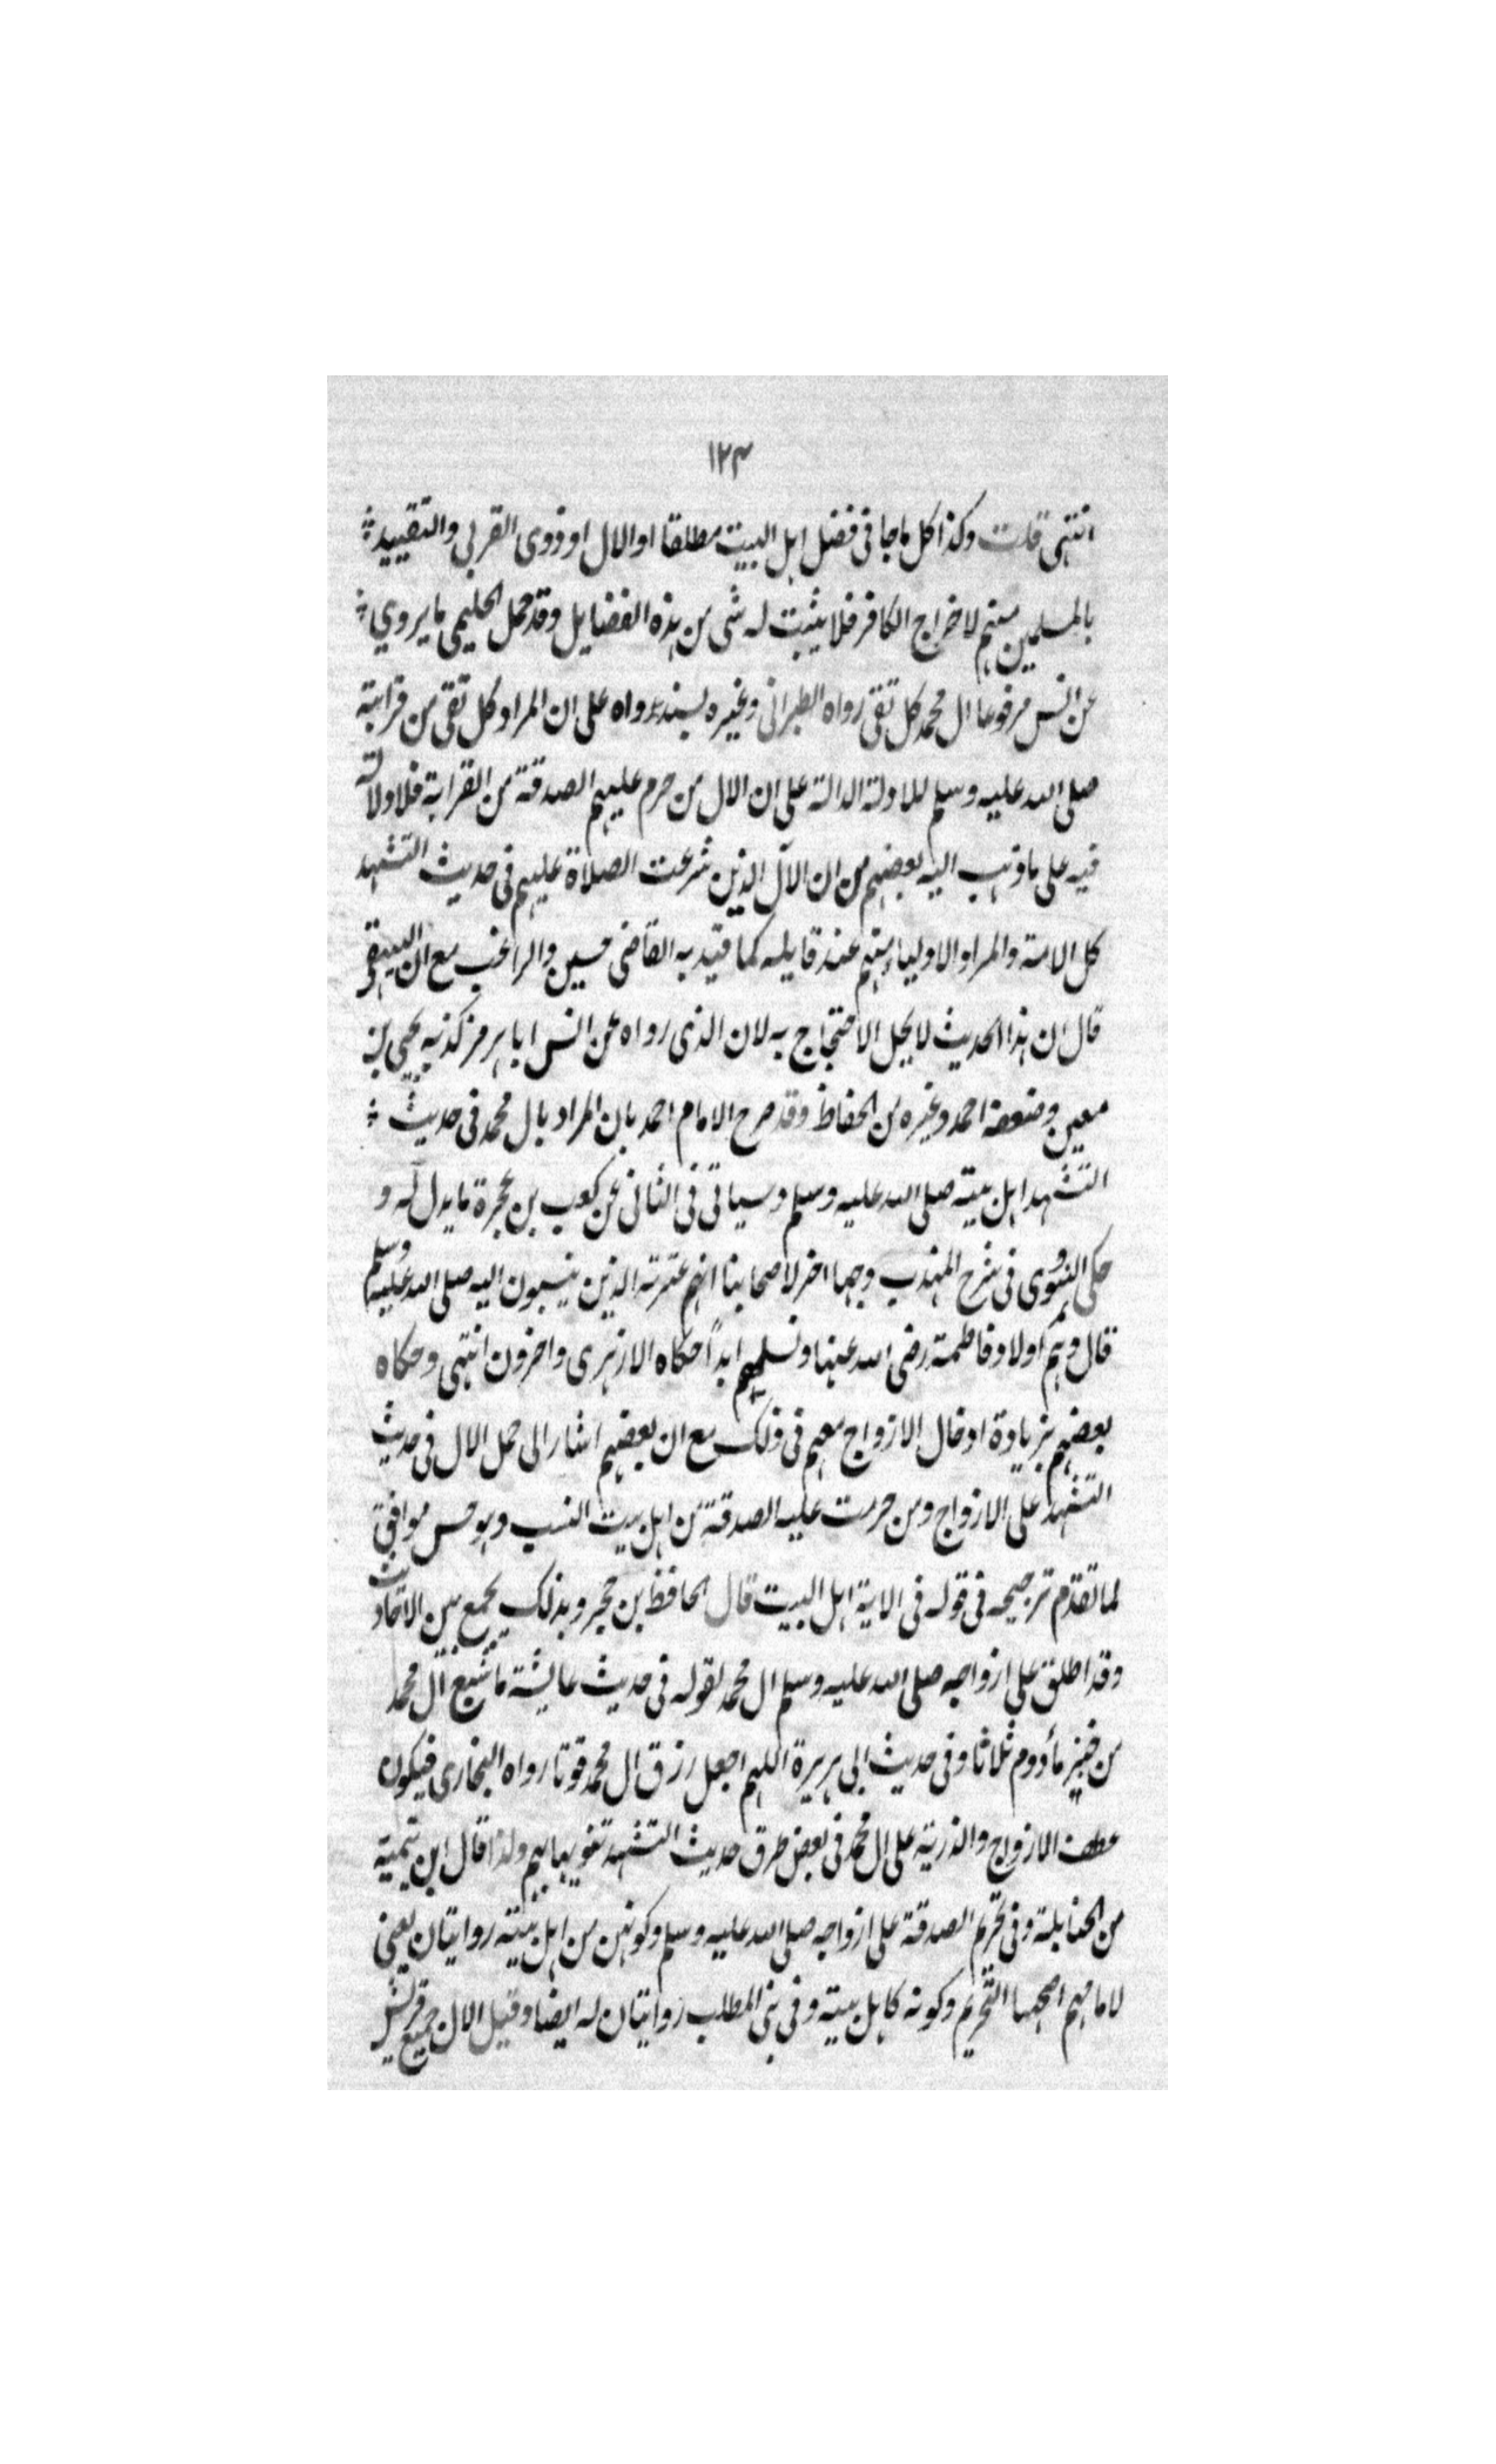 ١٢٣
انتهى قلت وكذا كل ماجا فى فضل اهل البيت مطلقا اوالال او ذوى القربى والتقييد
بالمسلمين منهم لاخراج الكافر فلا يثبت له شى من هذه الفضايل وقد حمل الحليمى ما يروي
عن انس مرفوعا ال محمد كل تقى رواه الطبرانى وغيره بسند رواه على ان المراد كل تقى من قرابته
صلى الله عليه وسلم للادلة الدالة على ان الال من حرم عليهم الصدقة من القرابة فلا دلالة
فيه على ما ذهب اليه بعضهم من ان الآل الذين شرعت الصلاة عليهم فى حديث التشهد
كل الامة والمراد الاوليا منهم عند قايله كما قيد به القاضى حسين والراغب مع ان البيهقى
قال ان هذا الحديث لا يحل الاحتجاج به لان الذى رواه عن انس ابا هرمز كذبه يحيى بن
معين وضعفه احمد وغيره من الحفاظ وقد صرح الامام احمد بان المراد بال محمد فى حديث
التشهد اهل بيته صلى الله عليه وسلم وسياتى فى الثانى عن كعب بن عجرة ما يدل له و
حكى النووى فى شرح المهذب وجها اخر لاصحابنا انهم عترته الذين ينسبون اليه صلى الله عليه وسلم
قال وهم اولاد فاطمة رضى الله عنها ونسلهم ابدًا حكاه الازهرى واخرون انتهى وحكاه
بعضهم بزيادة ادخال الازواج معهم فى ذلك مع ان بعضهم اشار الى حمل الال فى حديث
التشهد على الازواج ومن حرمت عليه الصدقة من اهل بيت النسب وهو حسن موافق
لما تقدم ترجيحه فى قوله فى الاية اهل البيت قال الحافظ بن حجر وبذلك يجمع بين الاحاديث
وقد اطلق على ازواجه صلى الله عليه وسلم ال محمد لقوله فى حديث عايشة ما شبع ال محمد
من خبز مأدوم ثلاثا وفى حديث ابى هريرة اللهم اجعل رزق ال محمد قوتا رواه البخارى فيكون
عطف الازواج والذرية على ال محمد فى بعض طرق حديث التشهد تنويها بهم ولذا قال ابن تيمية
من الحنابلة وفى تحريم الصدقة على ازواجه صلى الله عليه وسلم وكونهن من اهل بيته روايتان يعنى
لامامهم اصحهما التحريم وكونه كاهل بيته وفى بنى المطلب روايتان له ايضا وقيل الال جميع قريش